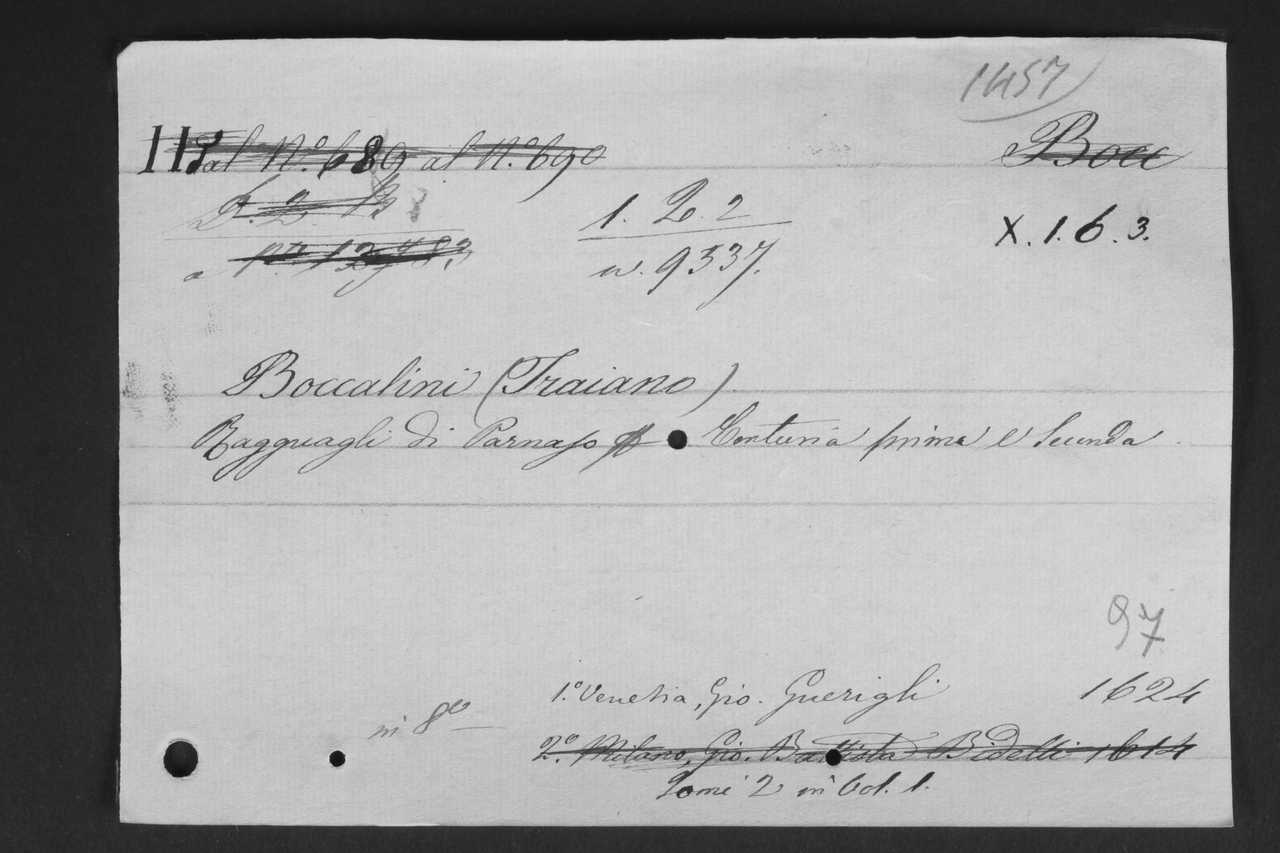 1457
115 dal N.º 689 al N.º 690
Bocc
1. L. 2
X. 1. 6. 3.
n. 9337.
Boccalini (Traiano)
Ragguagli di Parnaso Centuria prima e Secunda
97
1.º Venetia, Gio. Guerigli 1624
in 8º
2.º Milano, Gio. Battista Bidelli 1614
Tomi 2 in Vol. 1.